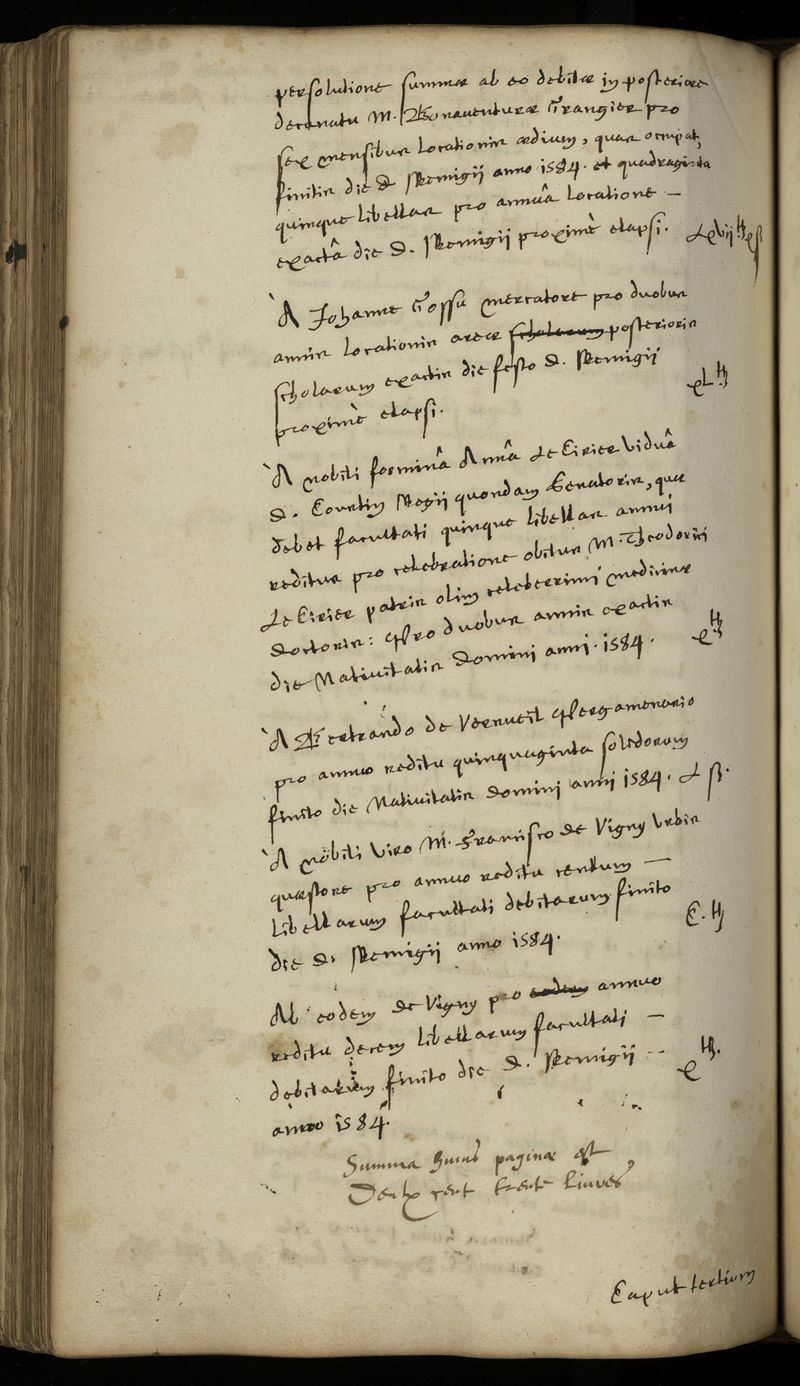 persolutione summæ ab eo debitæ in posteriore
decanatu M. Bonauenturæ Grangier pro
sex mensibus locationis ædium, quas occupat,
finitis die D. Remigij anno 1584. et quadraginta
quinque libellas pro annuâ locatione —
exactâ die D. Remigij proximè elapsi.
A Johanne Gossu mercatore pro duobus
annis locationis areæ scholarum posterioris
scholarum exactis die festo D. Remigij
proximè elapsi. xL ₶
A nobili foeminâ Annâ Le Cirier viduâ
D. Courtin Regij quondam Senatoris, quæ
debet facultati quinque libellas annui
reditus pro celebratione obitus M. Theodorici
Le Cirier patris olim celeberrimi medicinæ
doctoris: Pro duobus annis exactis
die Natiuitatis Domini anni 1584. x ₶
A Bertrando de Verneuil Pergamenario
pro annuo reditu quinquaginta solidorum
finito die Natiuitatis Domini anni 1584. L ß.
A nobili viro M. Francisco de Vigny Vrbis
quæstore pro annuo reditu centum —
libellarum facultati debitarum finito
die D. Remigij anno 1584. C. ₶
Ab eodem de Vigny pro eodem annuo
reditu decem libellarum facultati —
debitarum finito die D. Remigij --
anno 1584. x ₶.
Summa huius paginæ est
Deux cent trente liures
Caput tertium